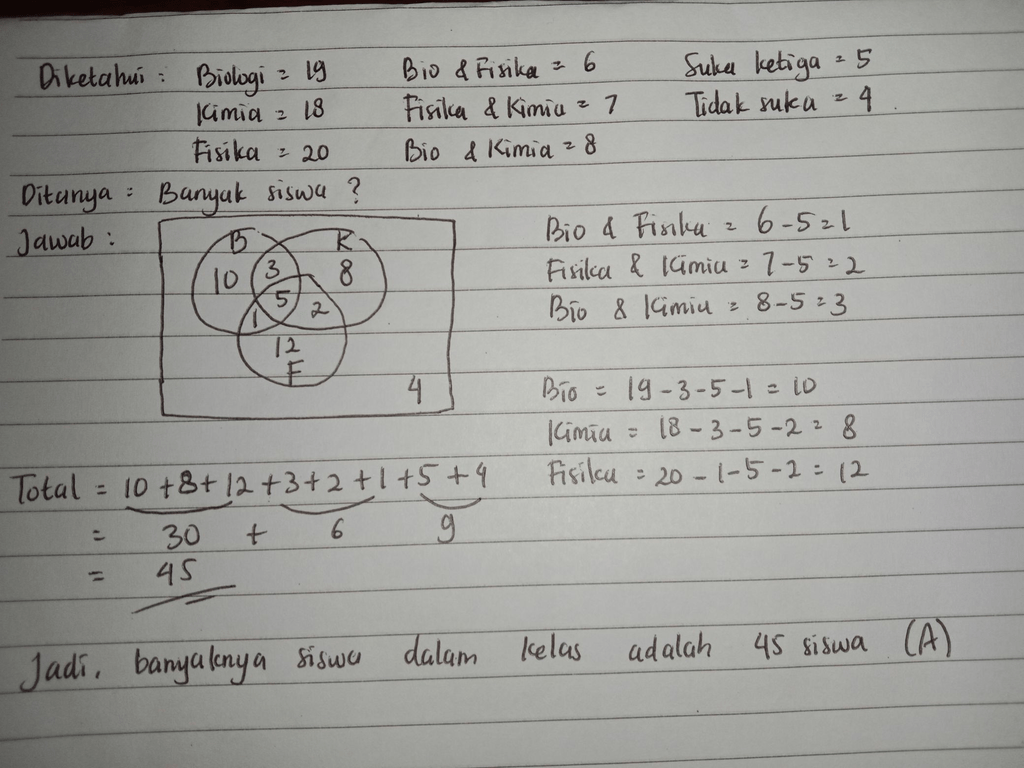 Diketahui : Biologi = 19 Bio & Fisika = 6 Suka ketiga = 5
Kimia = 18 Fisika & Kimia = 7 Tidak suka = 4
Fisika = 20 Bio & Kimia = 8
Ditanya : Banyak siswa ?
Jawab :
B K
10 3 8
5
1 2
12
F
4
Bio & Fisika = 6 - 5 = 1
Fisika & Kimia = 7 - 5 = 2
Bio & Kimia = 8 - 5 = 3
Bio = 19 - 3 - 5 - 1 = 10
Kimia = 18 - 3 - 5 - 2 = 8
Fisika = 20 - 1 - 5 - 2 = 12
Total = 10 + 8 + 12 + 3 + 2 + 1 + 5 + 4
= 30 + 6 9
= 45
Jadi, banyaknya siswa dalam kelas adalah 45 siswa (A)